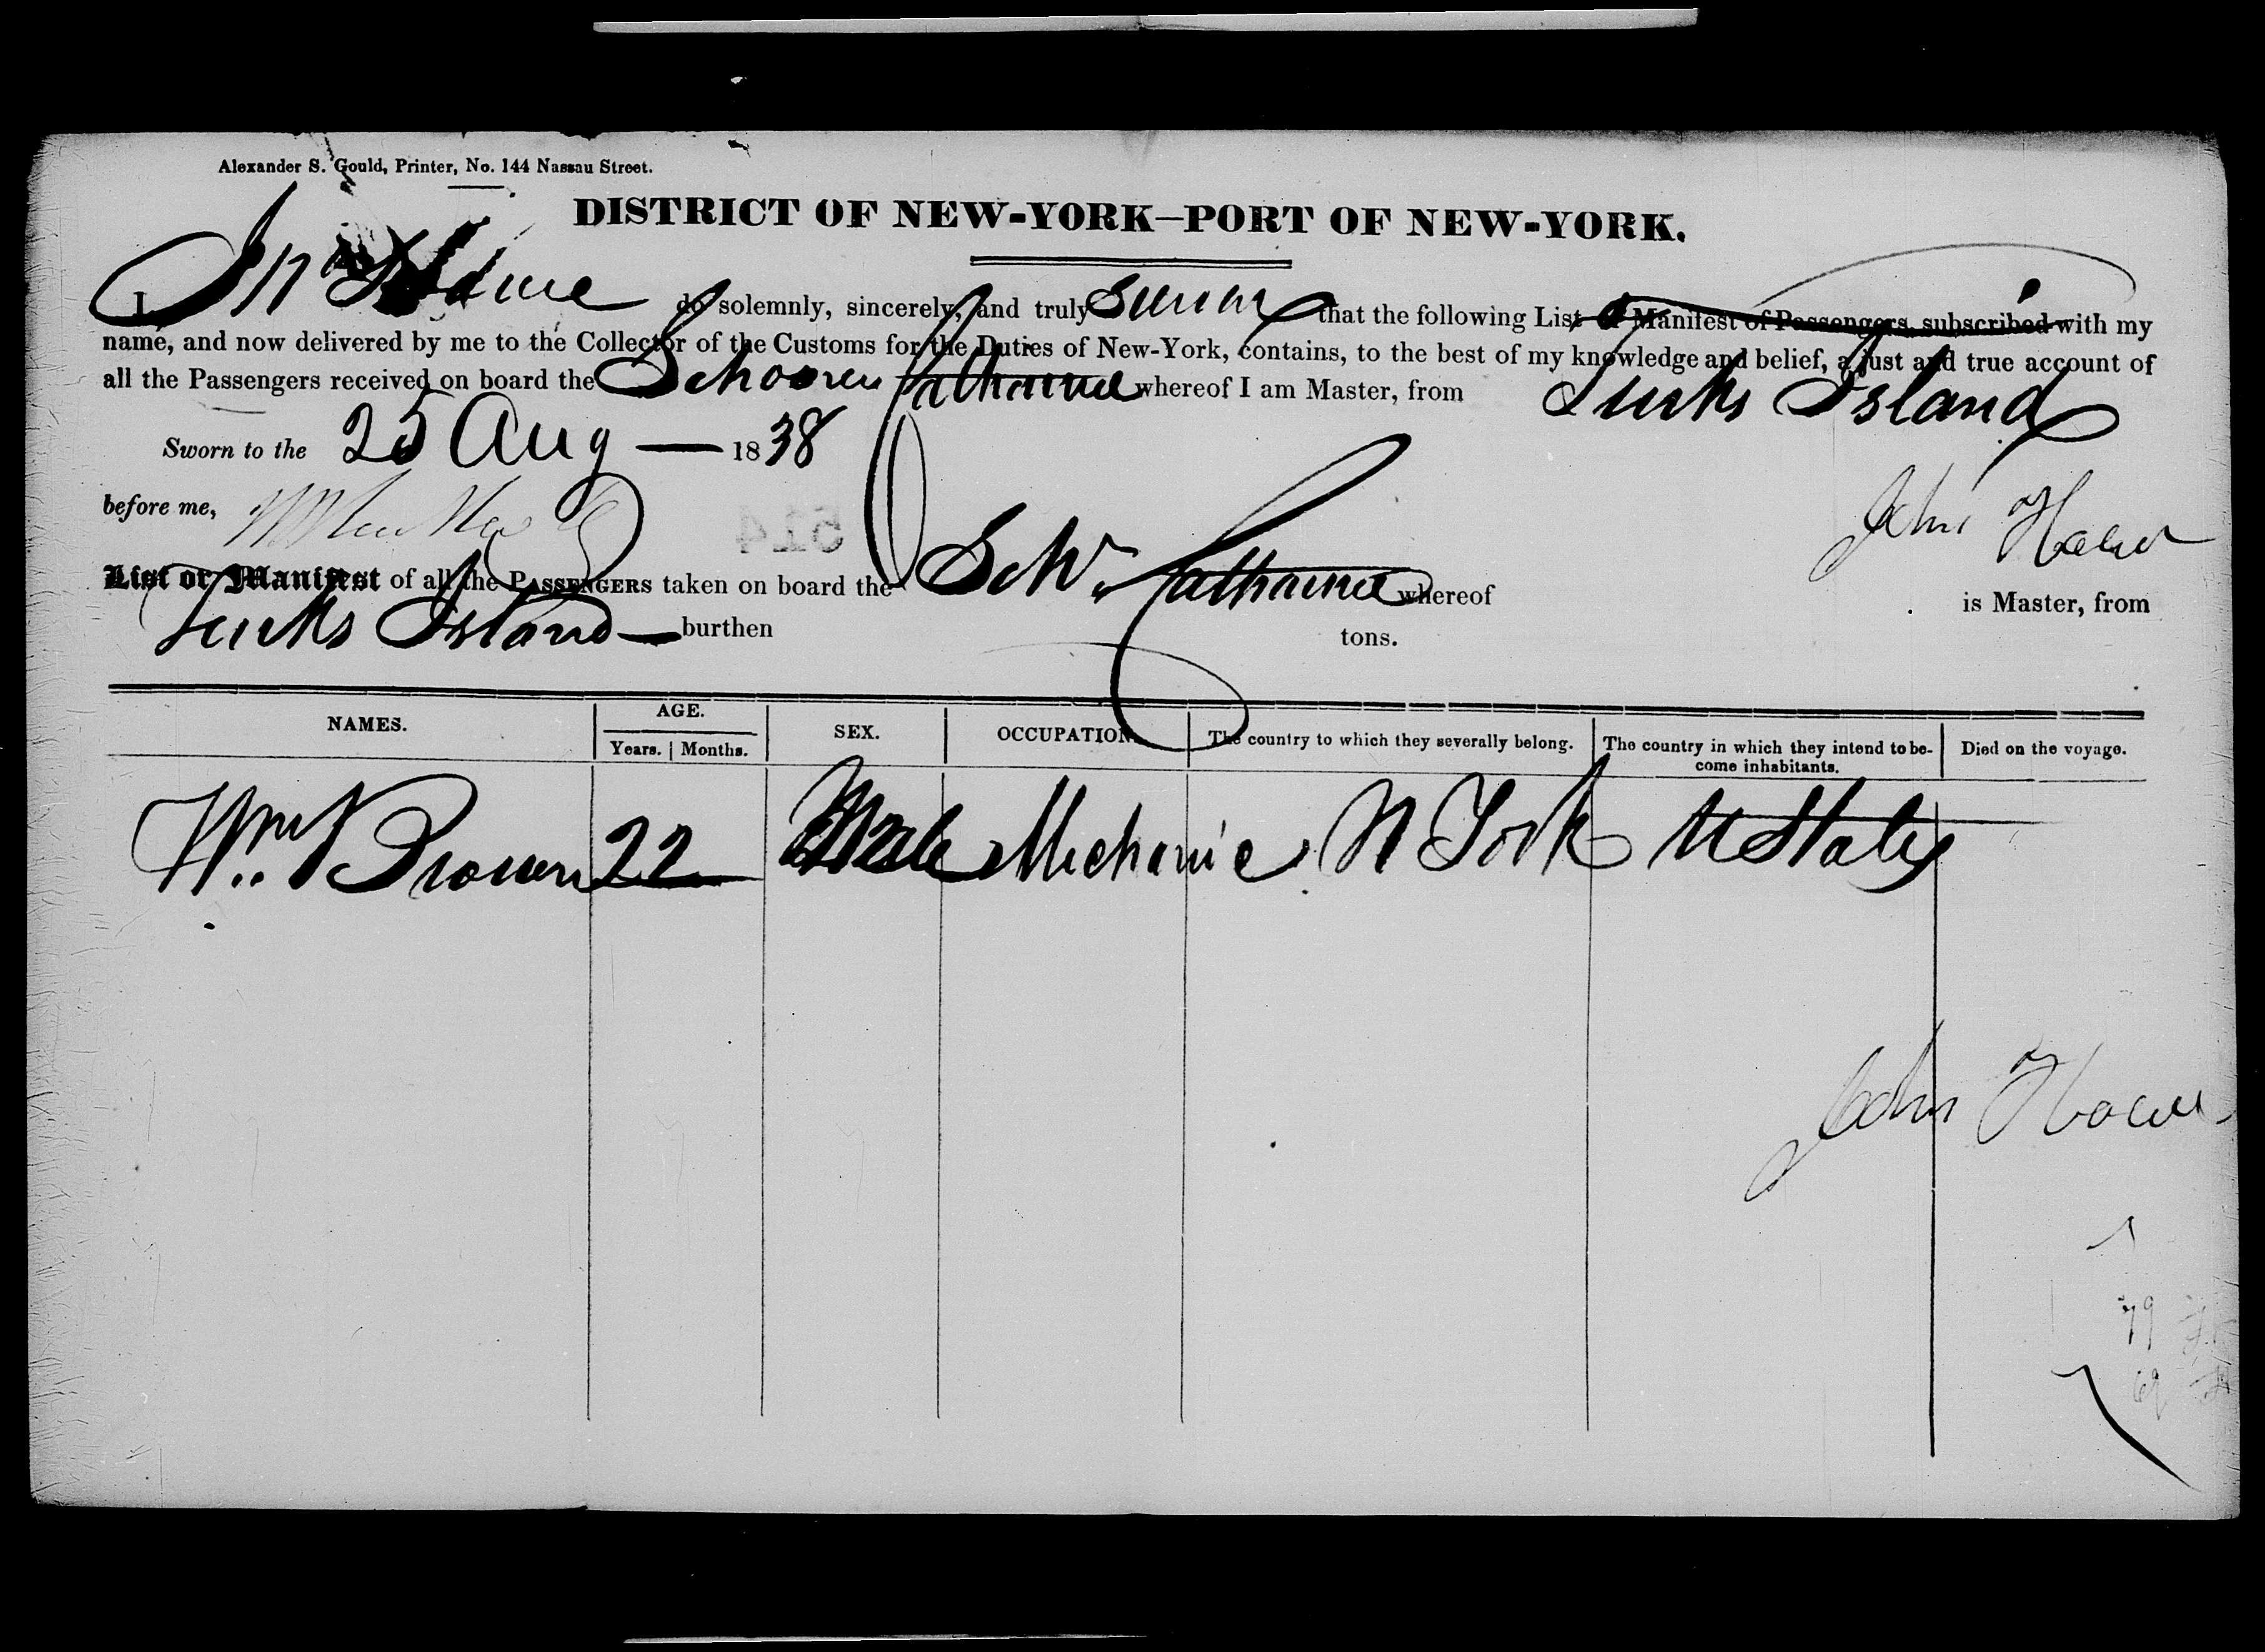 Alexander S. Gould, Printer, No. 144 Nassau Street.
DISTRICT OF NEW-YORK—PORT OF NEW-YORK.
I, do solemnly, sincerely, and truly swear that the following List or Manifest of Passengers, subscribed with my
name, and now delivered by me to the Collector of the Customs for the Duties of New-York, contains, to the best of my knowledge and belief, a just and true account of
all the Passengers received on board the Schooner Catharine whereof I am Master, from Turks Island
Sworn to the 25 Aug — 1838
before me,
John
514
List or Manifest of all the PASSENGERS taken on board the Schr. Catharine whereof is Master, from
Turks Island — burthen tons.
NAMES. AGE. SEX. OCCUPATION. The country to which they severally belong. The country in which they intend to be- Died on the voyage.
Years. Months. come inhabitants.
Wm. Brown 22 Male Mechanic N York U States
John
79
69